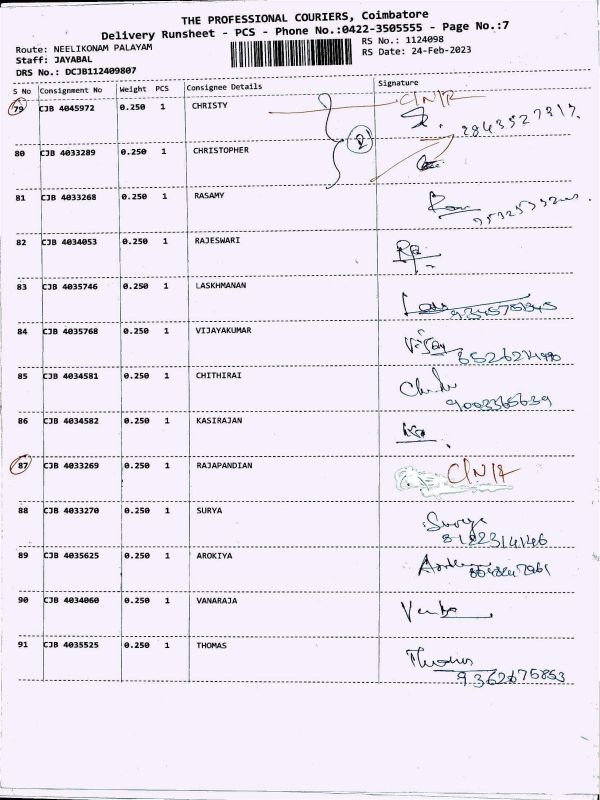 THE PROFESSIONAL COURIERS, Coimbatore
Delivery Runsheet - PCS - Phone No.:0422-3505555 - Page No.:7
Route: NEELIKONAM PALAYAM
RS No.: 1124098
Staff: JAYABAL
RS Date: 24-Feb-2023
DRS No.: DCJB112409807
S No Consignment No Weight PCS Consignee Details Signature
79 CJB 4045972 0.250 1 CHRISTY C/N/R
80 CJB 4033289 0.250 1 CHRISTOPHER
81 CJB 4033268 0.250 1 RASAMY
82 CJB 4034053 0.250 1 RAJESWARI
83 CJB 4035746 0.250 1 LASKHMANAN
84 CJB 4035768 0.250 1 VIJAYAKUMAR Vijay
85 CJB 4034581 0.250 1 CHITHIRAI
9003365639
86 CJB 4034582 0.250 1 KASIRAJAN
87 CJB 4033269 0.250 1 RAJAPANDIAN C/N/R
88 CJB 4033270 0.250 1 SURYA Surya
8122314146
89 CJB 4035625 0.250 1 AROKIYA
90 CJB 4034060 0.250 1 VANARAJA
91 CJB 4035525 0.250 1 THOMAS Thomas
9362675853